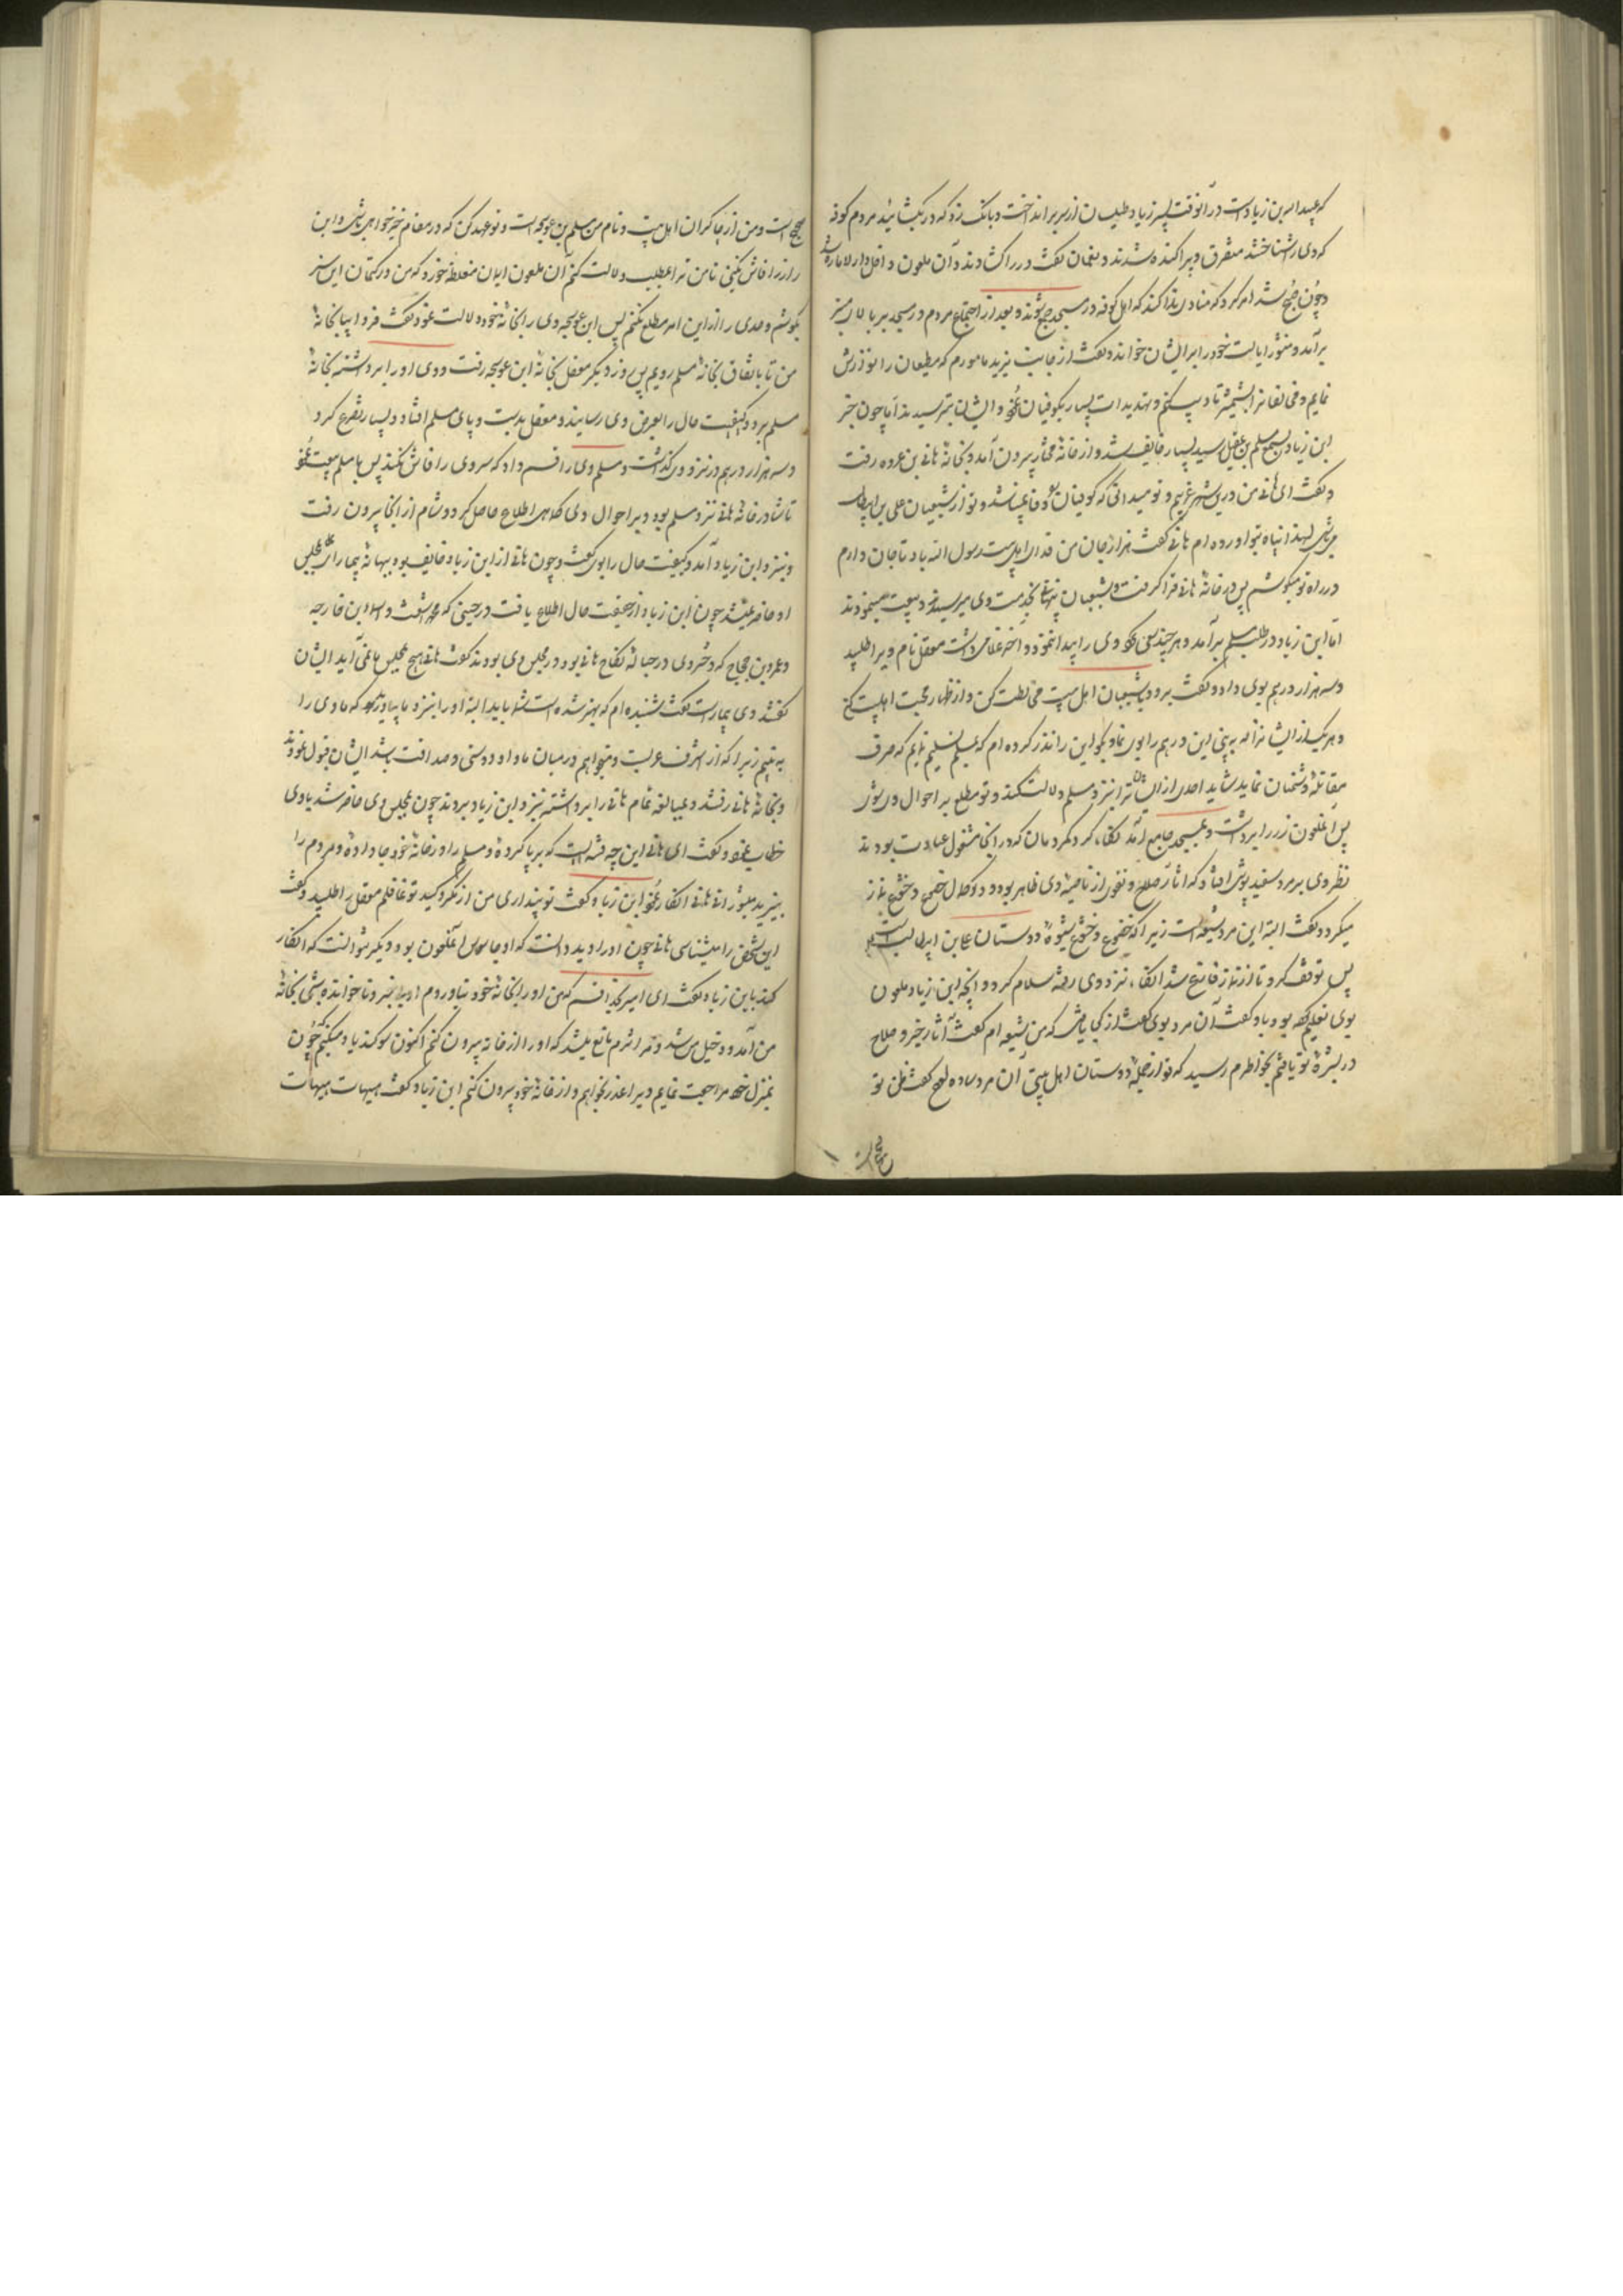 که عبیدالله بن زیاد است در آنوقت پسر زیاد طیلسان از سر برانداخت و بانک زد که در بکشائید مردم کوفه
که وی را شناختند متفرق و پراکنده شدند و نعمان گفت در را گشادند و آن ملعون داخل دار الاماره شد
و چون صبح شد امر کرد که منادی ندا کند که اهل کوفه در مسجد جمع شوند و بعد از اجتماع مردم در مسجد بر بالای منبر
برآمد و منشور ایالت خود را بر ایشان خواند و گفت از جانب یزید مامورم که مطیعان را نوازش
نمایم و مخالفانرا بشمشیر تادیب کنم و تهدیدات بسیار بکوفیان نمود و ایشان بترسیدند اما چون خبر
ابن زیاد بسمع مسلم بن عقیل رسید بسیار خایف شد و از خانهٔ مختار بیرون آمد و بخانهٔ هانی بن عروه رفت
و گفت ای هانی من درین شهر غریبم و تو میدانی که کوفیان وفا نمیباشد و تو از شیعیان علی بن ابیطالب
می باشی لهذا پناه بتو آورده ام هانی گفت هزار جان من فدای اهل بیت رسول الله باد تا جان دارم
در راه تو میکوشم پس در خانهٔ هانی قرار گرفت و شیعیان پنهانی بخدمت وی میرسیدند و بیعت مینمودند
اما ابن زیاد در طلب مسلم برآمد و هرچند سعی کرد وی را پیدا ننمود و آخر غلامی داشت معقل نام ویرا طلبید
و سه هزار درهم بوی داد و گفت برو و با شیعیان اهل بیت مخالطت کن و از اظهار محبت اهلبیت کن
و هر یک از ایشانرا که به بینی این درهم را بوی نما و بگو این را نذر کرده ام که بمسلم تسلیم نمایم که صرف
مقاتلهٔ دشمنان نماید شاید احدی از ایشان ترا بنزد مسلم دلالت کند و تو مطلع بر احوال وی شوی
پس آنملعون زر را برداشت و بمسجد جامع آمد نگاه کرد بمردمان که در آنجا مشغول عبادت بودند
نظر وی بر مرد سفید پوش افتاد که آثار صلاح و تقوی از ناصیهٔ وی ظاهر بود و بکمال خضوع و خشوع نماز
میکرد و گفت البته این مرد شیعه است زیرا که خضوع و خشوع شیوهٔ دوستان علی بن ابیطالب است
پس توقف کرد تا از نماز فارغ شد آنگاه نزد وی رفته سلام کرد و آنچه ابن زیاد ملعون
بوی تعلیم کرده بود باو گفت آن مرد بوی گفت از کجا یافتی که من شیعه ام گفت آثار خیر و صلاح
در بشرهٔ تو یافتم بخاطرم رسید که تو از جملهٔ دوستان اهل بیتی آن مرد ساده لوح گفت ظن تو
صحیح است
صحیح است و من از چاکران اهل بیت و نام من مسلم بن عوسجه است و تو عهد کن که در مقام خیرخواهی باشی و این
راز را فاش نکنی تا من ترا بمطلب دلالت کنم آن ملعون ایمان مغلظه خورد که من در کتمان این سر
بکوشم و احدی را از این امر مطلع نکنم پس ابن عوسجه وی را بخانهٔ خود دلالت نمود و گفت فردا بیا بخانهٔ
من تا باتفاق بخانهٔ مسلم رویم پس روز دیگر معقل بخانهٔ ابن عوسجه رفت و وی او را برداشته بخانهٔ
مسلم برد و کیفیت حال را بعرض وی رسانید و معقل بدست و پای مسلم افتاد و بسیار تضرع کرد
و سه هزار درهم در نزد وی گذاشت و مسلم وی را قسم داد که سر وی را فاش نکند پس با مسلم بیعت نمود
تا شام در خانهٔ هانی نزد مسلم بود و بر احوال وی کماهی اطلاع حاصل کرد و شام از آنجا بیرون رفت
و بنزد ابن زیاد آمد و کیفیت حال را بوی گفت و چون هانی از ابن زیاد خایف بود ببهانهٔ بیماری بمجلس
او حاضر نمیشد چون ابن زیاد از حقیقت حال اطلاع یافت در حینی که محمد اشعث و اسماء بن خارجه
و عمرو بن حجاج که دختر وی در حبالهٔ نکاح هانی بود در مجلس وی بودند گفت هانی هیچ بمجلس ما نمی آید ایشان
گفتند وی بیمار است گفت شنیده ام که بهتر شده است شما باید البته او را بنزد ما بیاورید که ما وی را
به بینیم زیرا که از اشراف عربست و میخواهیم در میان ما و او دوستی و صداقت باشد ایشان قبول نمودند
و بخانهٔ هانی رفتند و بمبالغهٔ تمام هانی را برداشته بنزد ابن زیاد بردند چون بمجلس وی حاضر شد با وی
خطاب نمود و گفت ای هانی این چه فتنه ایست که برپا کردهٔ و مسلم را در خانهٔ خود جا دادهٔ و مردم را
بیزید میشورانی هانی انکار نمود ابن زیاد گفت تو پنداری من از مکر و کید تو غافلم معقل را طلبید و گفت
این شخص را میشناسی هانی چون او را دید دانست که او جاسوس آنملعون بود و دیگر نتوانست که انکار
کند بابن زیاد گفت ای امیر بخدا قسم که من او را بخانهٔ خود نیاوردم او بیخبر و ناخوانده شبی بخانهٔ
من آمد و دخیل من شد و مرا شرم مانع میشد که او را از خانه بیرون کنم اکنون سوگند یاد میکنم که چون
بمنزل خود مراجعت نمایم ویرا عذر بخواهم و از خانهٔ خود بیرون کنم ابن زیاد گفت هیهات هیهات